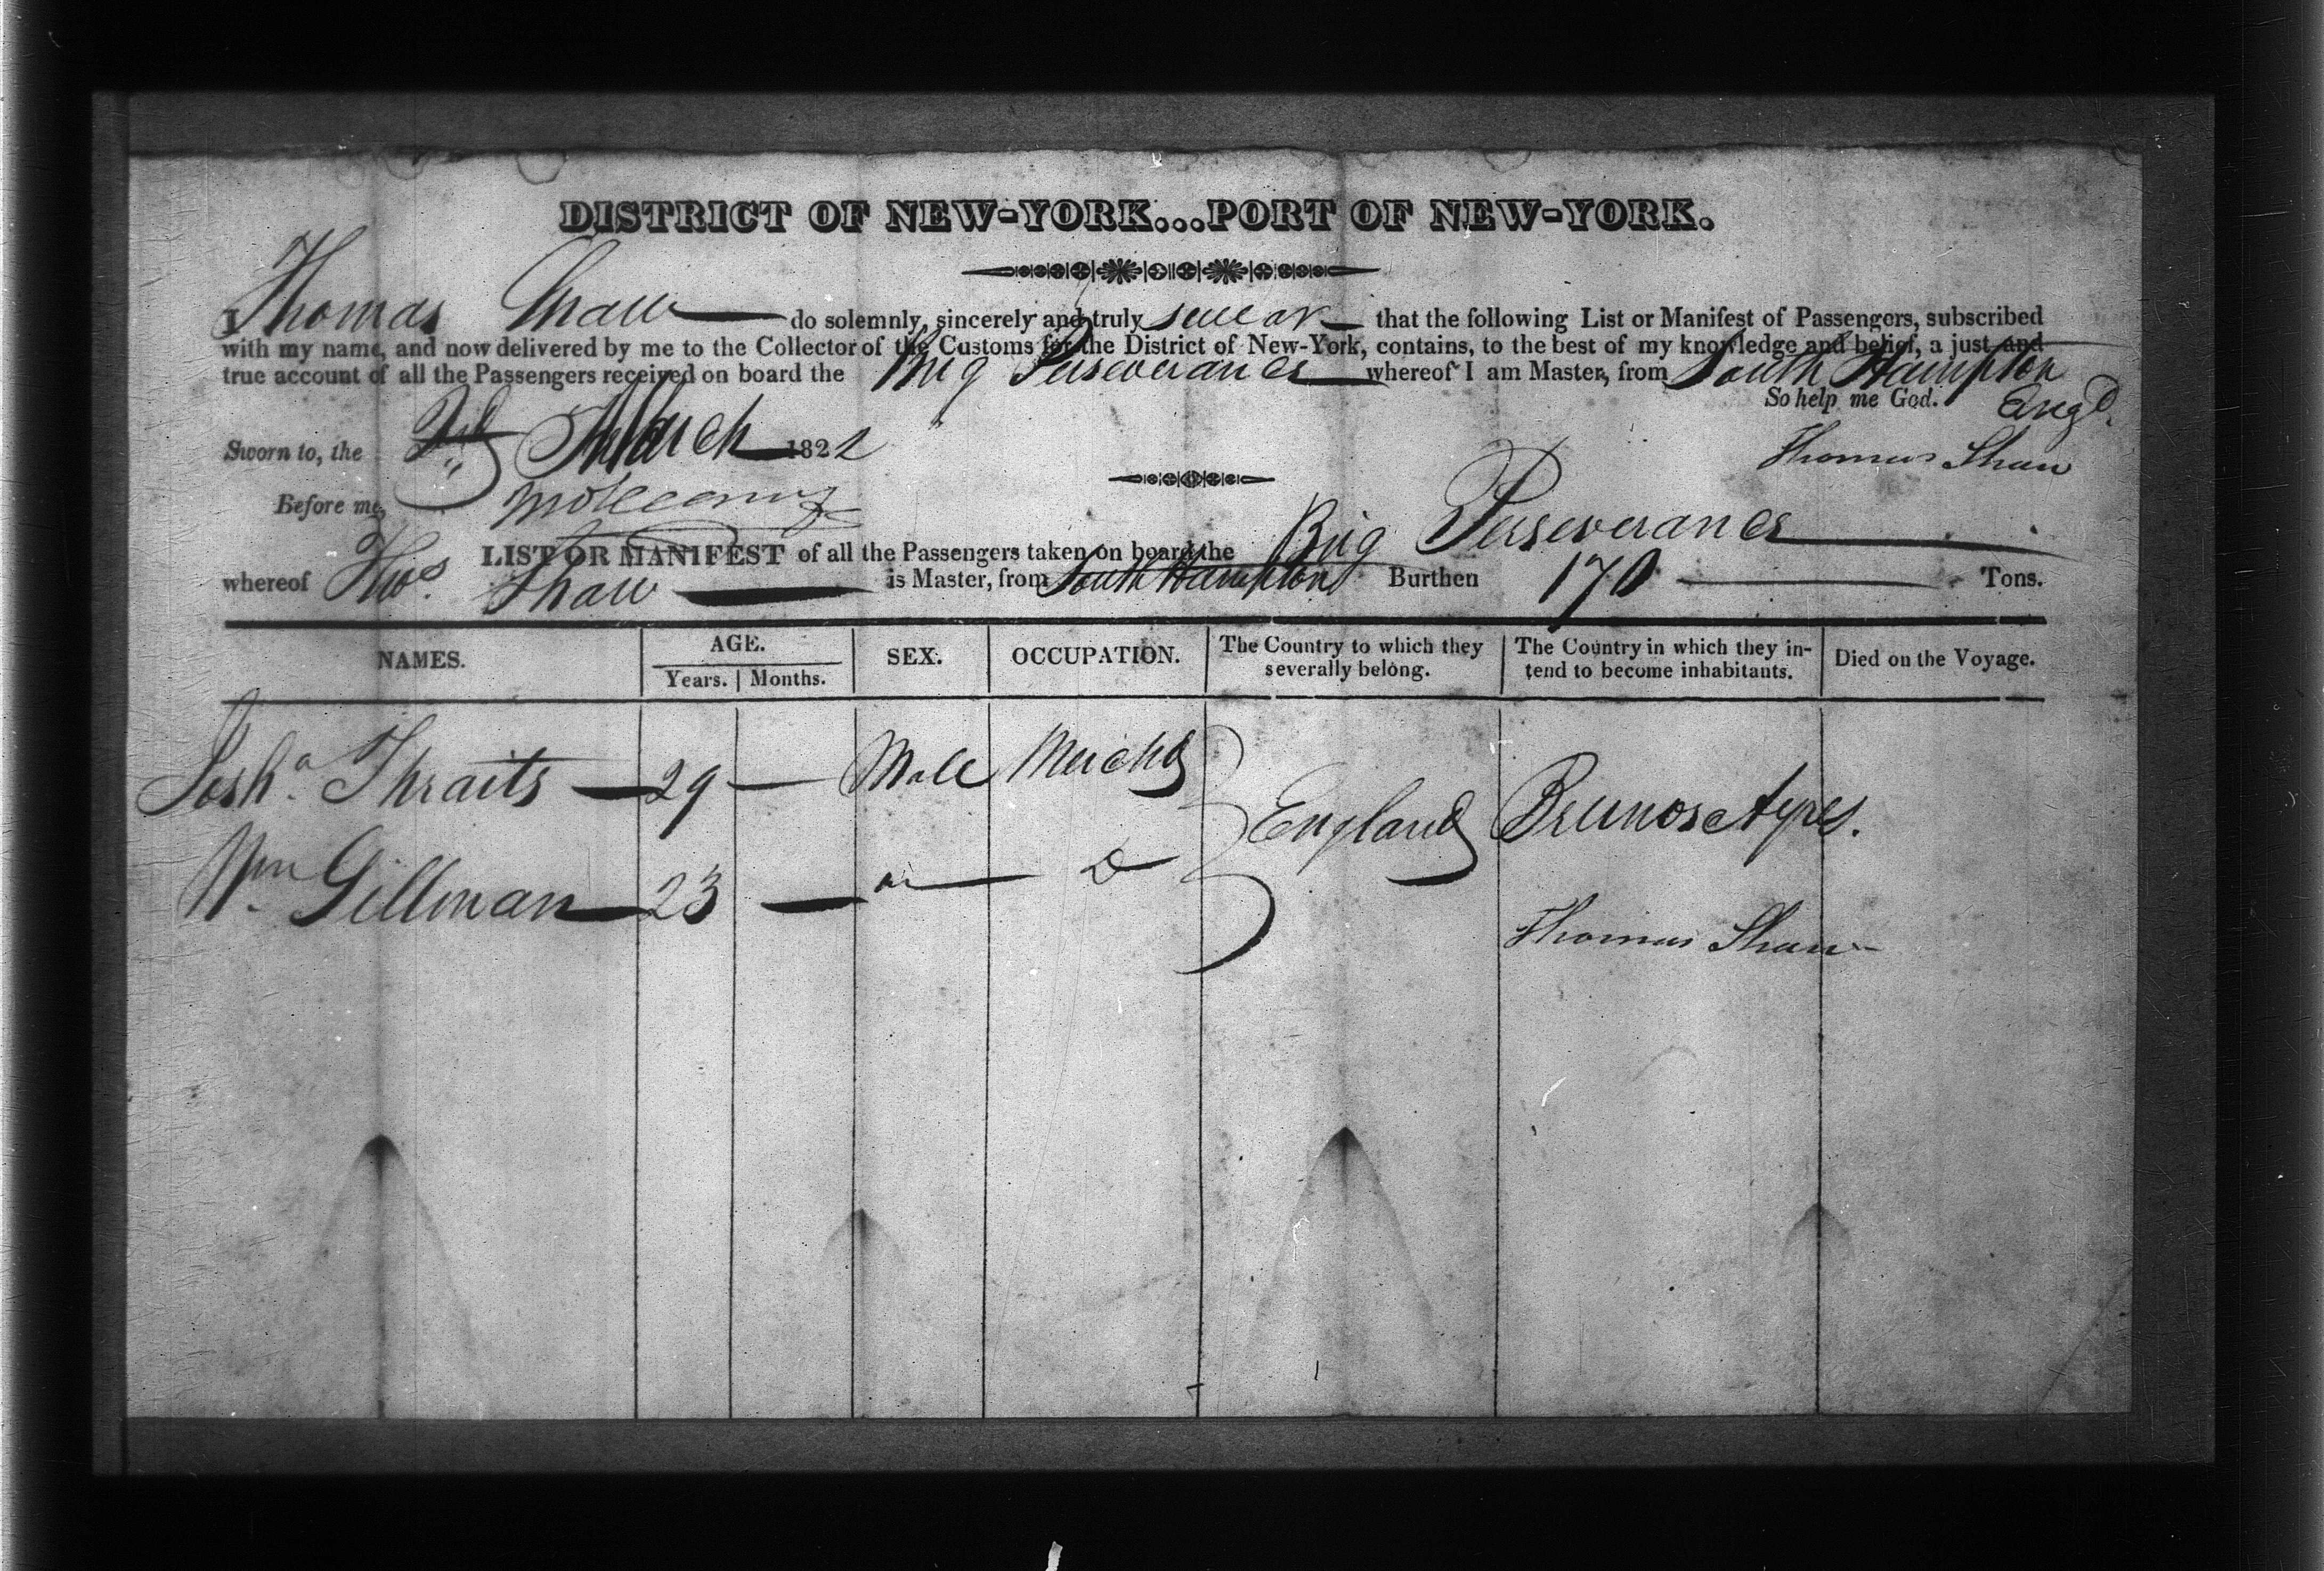 DISTRICT OF NEW-YORK...PORT OF NEW-YORK.
I Thomas Shaw do solemnly, sincerely and truly swear that the following List or Manifest of Passengers, subscribed
with my name, and now delivered by me to the Collector of the Customs for the District of New-York, contains, to the best of my knowledge and belief, a just and
true account of all the Passengers received on board the Brig Perseverance whereof I am Master, from South Hampton
So help me God. Engd.
Sworn to, the March 1822 Thomas Shaw
Before me,
LIST OR MANIFEST of all the Passengers taken on board the Brig Perseverance
whereof Thos. Shaw is Master, from South Hampton Burthen 170 Tons.
NAMES. AGE. Years. Months. SEX. OCCUPATION. The Country to which they severally belong. The Country in which they intend to become inhabitants. Died on the Voyage.
Josha. Thraits 29 Male Merchts
England Buenos Ayres.
Wm Gillman 23 D
Thomas Shaw